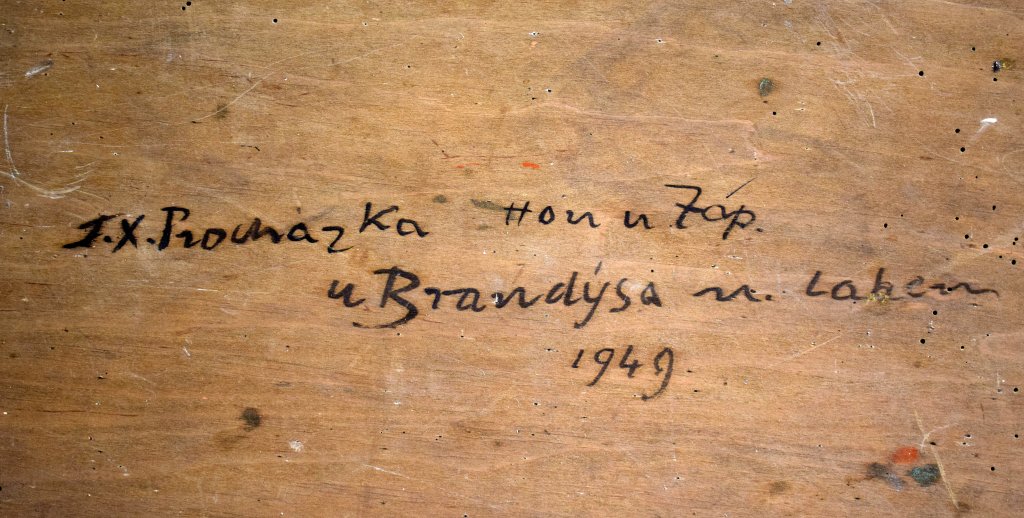 J.X. Procházka Hon u Záp.
u Brandýsa n. Labem
1949